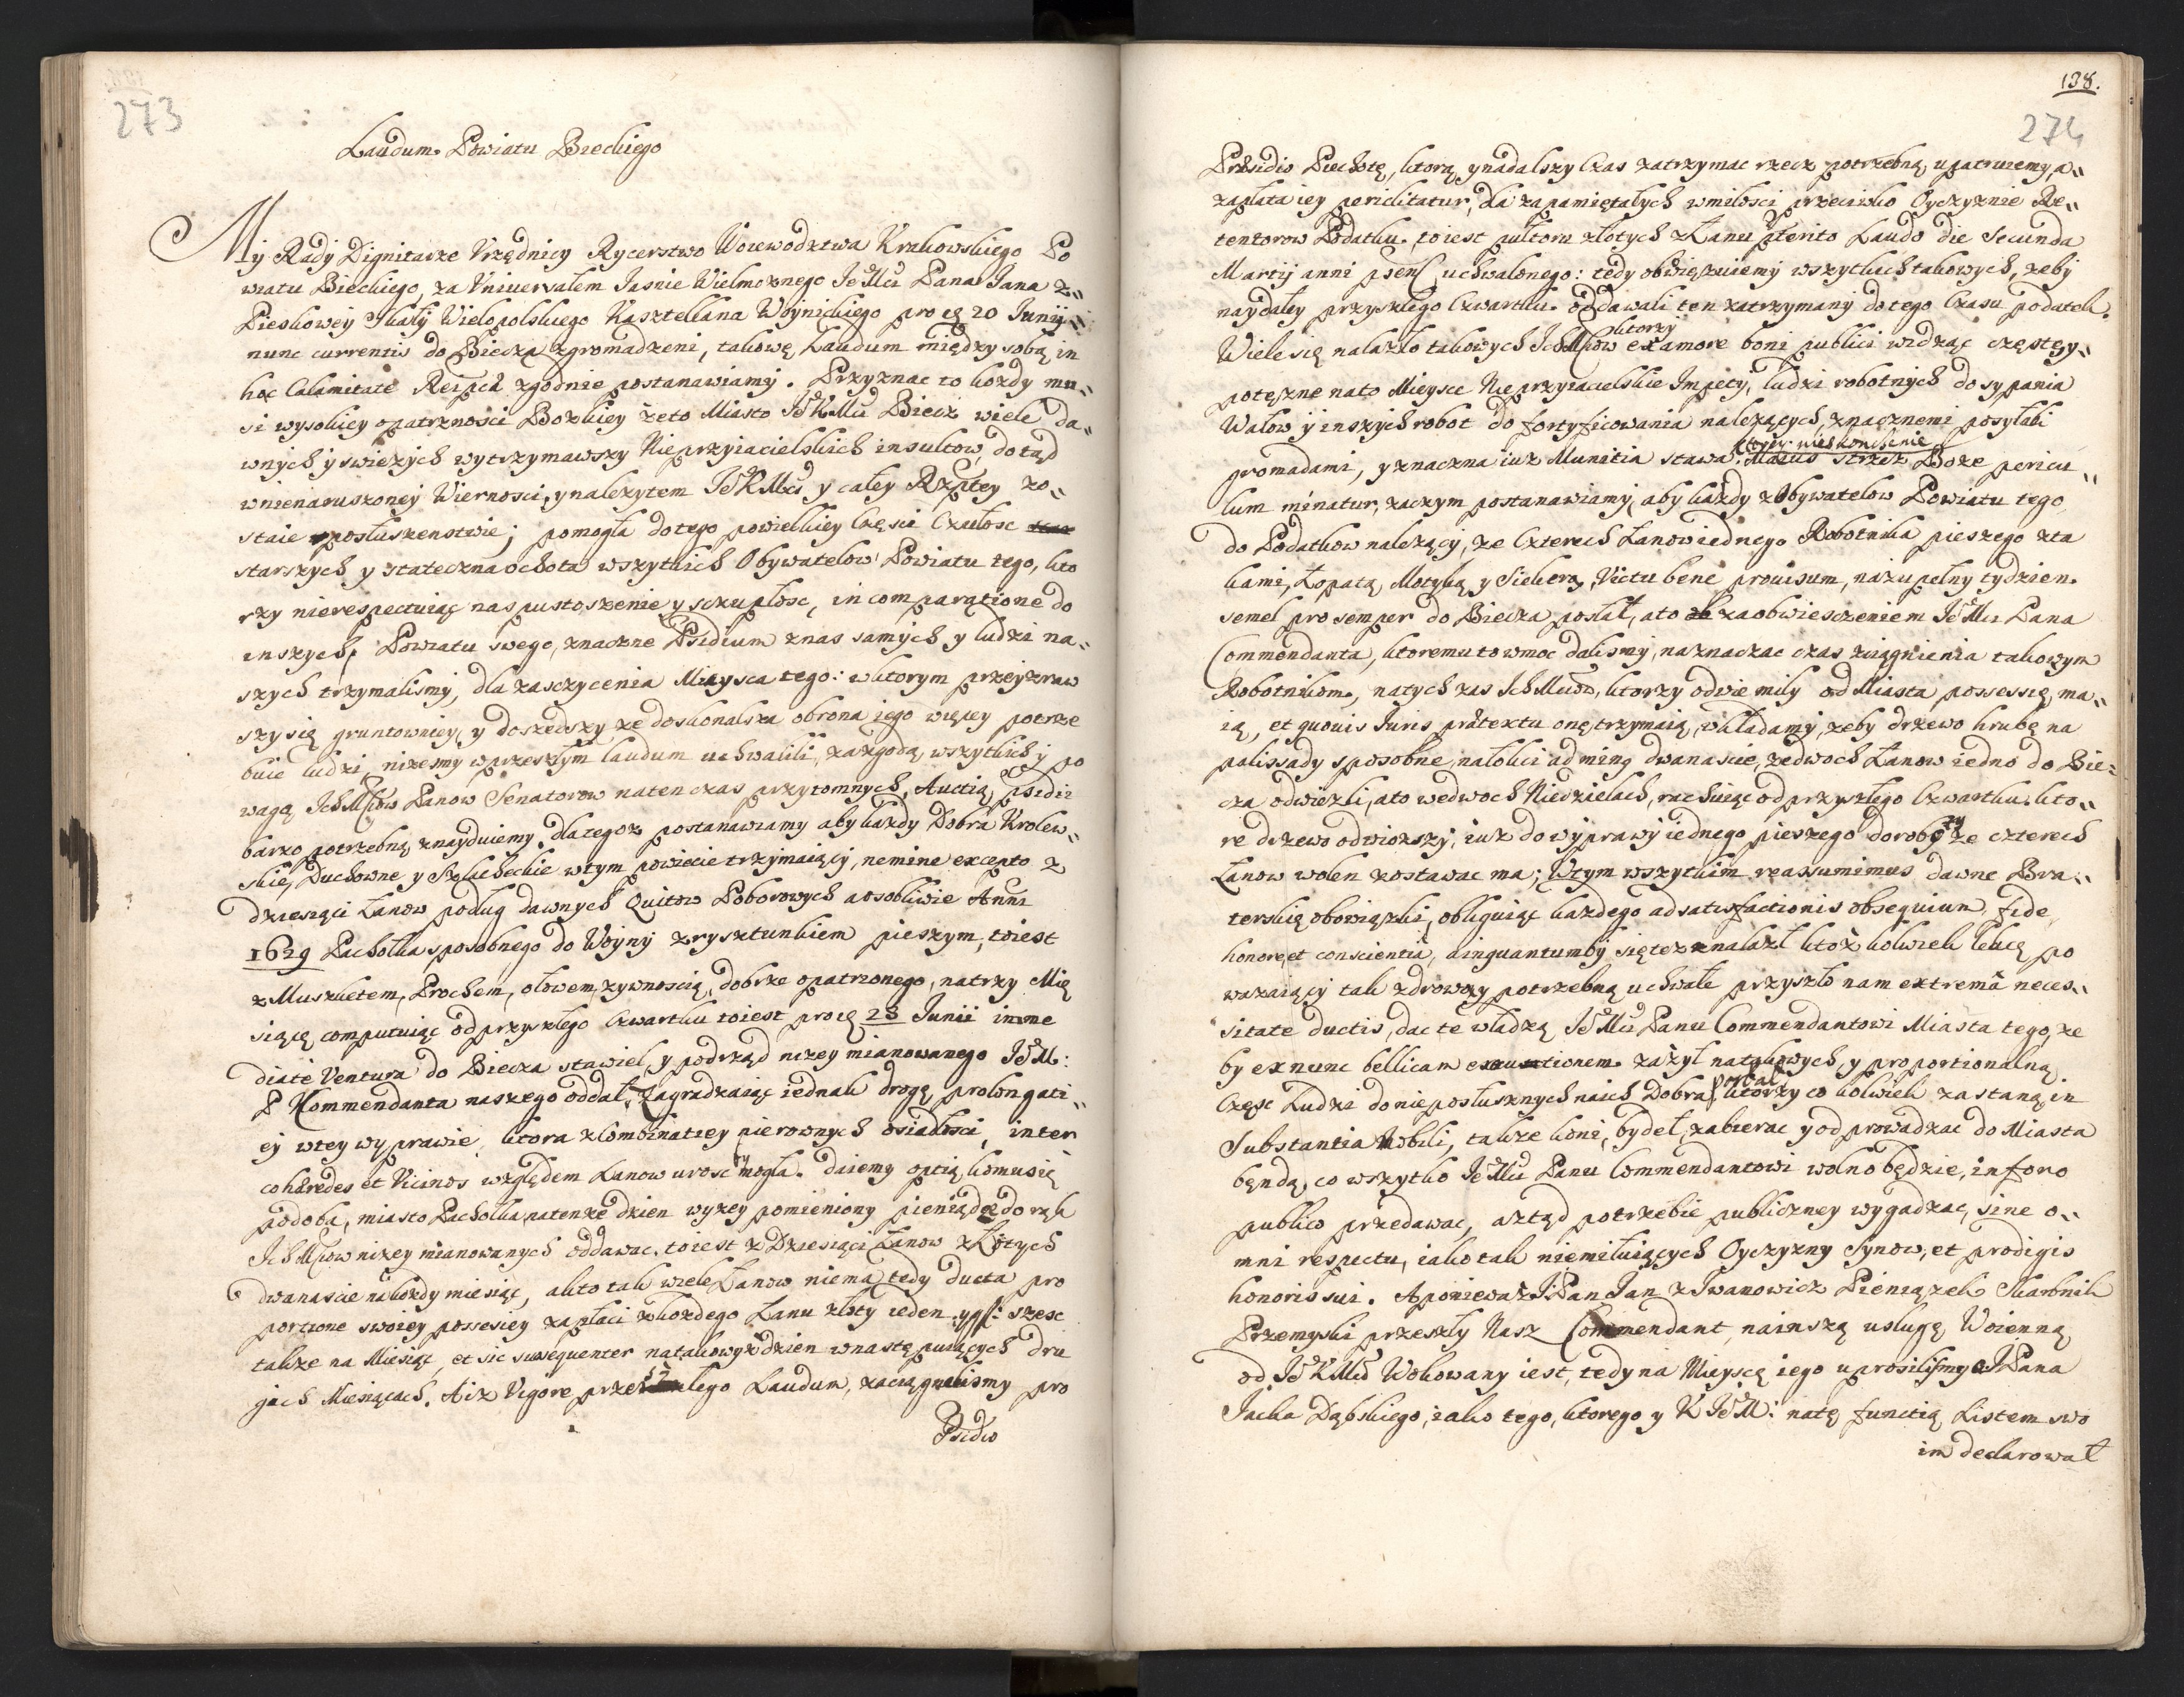 273
Laudum Powiatu Bieckiego
My Rady Dignitarze Vrzędnicy Rycerstwo Woiewodztwa Krakowskiego Po
wiatu Bieckiego, za Vniuersałem Jasnie Wielmoznego JeMci Pana Jana z„
Pieskowey Skały Wielopolskiego Kasztellana Woynickiego pro 20 Junij„
nunc currentis do Biecza zgromadzeni, takowę Laudum między sobą in
hoc Calamitate Reipcae zgodnie postanawiamy. Przyznac to kozdy mu„
si wysokiey opatrznosci Bozkiey żeto Miasto JeKMci Biecz wiele da„
wnych y swiezych wytrzymawszy Nieprzyiacielskich insultow, dotąd
wnienaruszoney Wiernosci, ynalezytem JeKMci y całey Rzptey zo„
staie posłuszenstwie; pomogła dotego powielkiey Częsci Czułosc
starszych y stateczna ochota wszytkich Obywatelow Powiatu tego, kto
rzy nierespectuiąc nas pustoszenie y sczupłosc, in comparatione do
inszych Powiatu swego, znaczne Psidium znas samych y ludzi na„
szych trzymalismy, dla zasczycenia Mieysca tego: wktorym przeyzraw
szy się gruntowniey, y doszedszy, ze doskonalsza obrona jego więcey potrze
buie ludzi, nizesmy wprzeszłym laudum uchwalili, zazgodą, wszytkich y po
wagą, IchMciow Panow Senatorow natenczas przytomnych, Auctią psidii
barzo potrzebną znayduiemy, dlategoz postanawiamy aby kazdy Dobra Krolew„
skie, Duchowne y Szlacheckie wtym powiecie trzymaiący, nemine excepto z
dziesiąci Łanow podług dawnych Quitow Poborowych aosobliwie Anni
1629 Pachołka sposobnego do Woyny zrysztunkiem pieszym, toiest
z Muszkietem, Prochem, ołowem, zywnoscią, dobrze opatrzonego, natrzy Mie
siące computuiąc odprzyszłego Czwartku toiest pro 23 Junii imme
diate Ventura do Biecza stawieł, y podrząd nizey mianowanego JeM:
P Kommendanta naszego oddał. Zagradzaiąc iednak drogę prolongati„
ey wtey wyprawie, ktora zkombinatiey nierownych osiadłosci, inter
cohaeredes et Vicinos względem Łanow urosc by mogła. daiemy optią, komu się
podoba, miasto Pachołka, natenze dzien wyzey pomieniony pieniądze do rąk
IchMciow nizey mianowanych oddawac, toiest z Dziesiąci Łanow złotych
dwanascie na kozdy miesiąc, akto tak wiele Łanow niema, tedy ducta pro
portione swoiey possesiey zapłaci zkozdego Łanu złoty ieden, y gr: szesc
takze na Miesiąc, et sic subsequenter natakowyż dzien wnastępuiących dru
gich Miesiącach. Aiz Vigore przeszłego Laudum, zaciągnelismy pro
Psidio
138.
274
Praesidio Piechotę, ktorą ynadalszy Czas zatrzymac rzecz potrzebną upatruiemy, a„
zapłata iey periclitatur, dla zapamiętałych wmiłosci przeciwko Oyczyznie Re„
tentorow Podatku toiest pułtora złotych zŁanu pterito Laudo die Secunda
Martij anni psent uchwalonego: tedy obwięzuiemy wszytkich takowych, zeby
naydaley przyszłego Czwartku oddawali ten zatrzymany dotego Czasu podatek.
Wiele się nalazło takowych IchMciow ktorzy ex amore boni publici widząc częste y„
potęzne nato Mieysce Nieprzyiacielskie Impety, ludzi robotnych do sypania
Wałow y inszych robot do fortyficowania nalezących, znacznemi posyłali
gromadami, y znaczna iuz Munitia stawa. ktorey nieskonczenie Maius strzez Boze pericu„
lum minatur, zaczym postanawiamy, aby kazdy zObywatelow Powiatu tego
do Podatkow nalezący, ze Czterech Łanow iednego Robotnika pieszego zta
kami, Łopatą, Motyką y Siekierą, Victu bene prouisum, nazupełny tydzien
semel pro semper do Biecza posłał, ato zaobwiesczeniem JeMci Pana
Commendanta, ktoremu towmoc dalismy, naznaczac czas zciągnienia takowym
Robotnikom, natych zas IchMciow, ktorzy odwie mily od Miasta possessią, ma„
ią, et quouis Iuris praetextu onę trzymaią, wkładamy, zeby drzewo hrubę na
palissady sposobne, nałokci ad ming dwanascie, zedwoch Łanow iedno do Bie„
cza odwiezli, ato wedwoch Niedzielach, rachuiąc odprzyszłego Czwartku. kto„
re drzewo odwiozszy, iuz do wyprawy iednego pieszego doroboty ze czterech
Łanow wolen zostawac ma; Wtym wszytkim reassumimus dawne Bra„
terskię obowiązki, obliguiąc kazdego ad satisfactionis obsequium, fide,
honore, et conscientia, a inquantumby się tez znalazł ktoż kolwiek lekcę po
wazaiący tak zdrową y potrzebną uchwałe przyszło nam extremâ neces„
sitate ductis, dac te władzą JeMci Panu Commendantowi Miasta tego, ze
by ex nunc bellicam executionem zażył natakowych, y proportionalną
Częsc Ludzi donieposłusznych naich Dobra posłał ktorzy co kolwiek zastaną in
Substantia Mobili, takze koni, bydeł, zabierac y odprowadzac do Miasta
będą, co wszytko JeMci Panu Commendantowi wolno będzie, in foro
publico przedawac, aztąd potrzebie publiczney wygadzac, sine o„
mni respectu, iako tak niemiłuiących Oyczyzny Synow, et prodigis
honoris sui. Aponiewaz JPan Jan z Iwanowicz Pieniązek Skarbnik
Przemyski przeszły Nasz Commendant, nainszą usługę Woienną
od JeKMci Wokowany iest, tedy na Mieyscę iego uprosilismy JPana
Jacka Dąbskiego, iako tego, ktorego y K JeM: natę functią Listem swo
im declarował